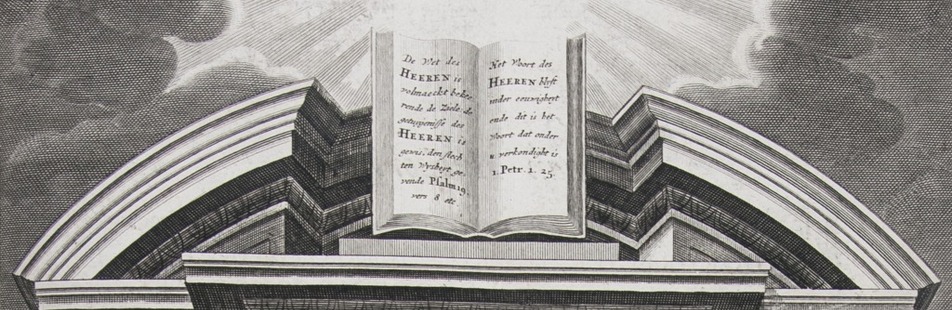 De Wet des
HEEREN is
volmaeckt beke-
rende de Ziele: de
getuygenisse des
HEEREN is
gewis, den slech
ten wijsheyt ge-
vende Psalm 19.
vers 8 etc
Het Woort des
HEEREN blyft
inder eeuwigheyt
ende dit is het
Woort dat onder
u verkondight is
1. Petr. 1. 25.